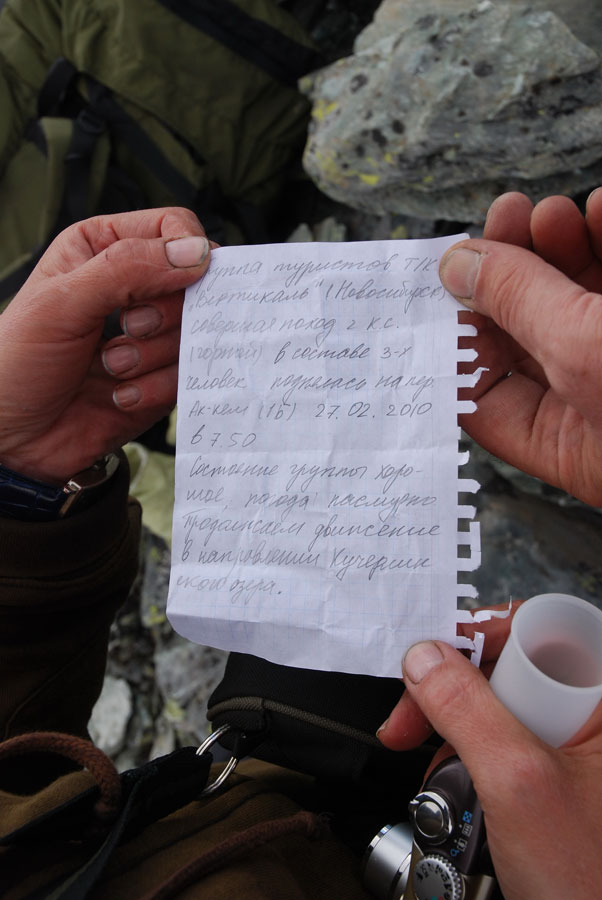 группа туристов Т/К
"Вертикаль" (Новосибирск)
совершая поход 2 к.с.
(горный) в составе 3-х
человек поднялась на пер.
Ак-кем (1Б) 27.02.2010
в 7.50
Состояние группы хоро-
шое, погода пасмурно
Продолжаем движение
в направлении Кучерлин
ского озера.